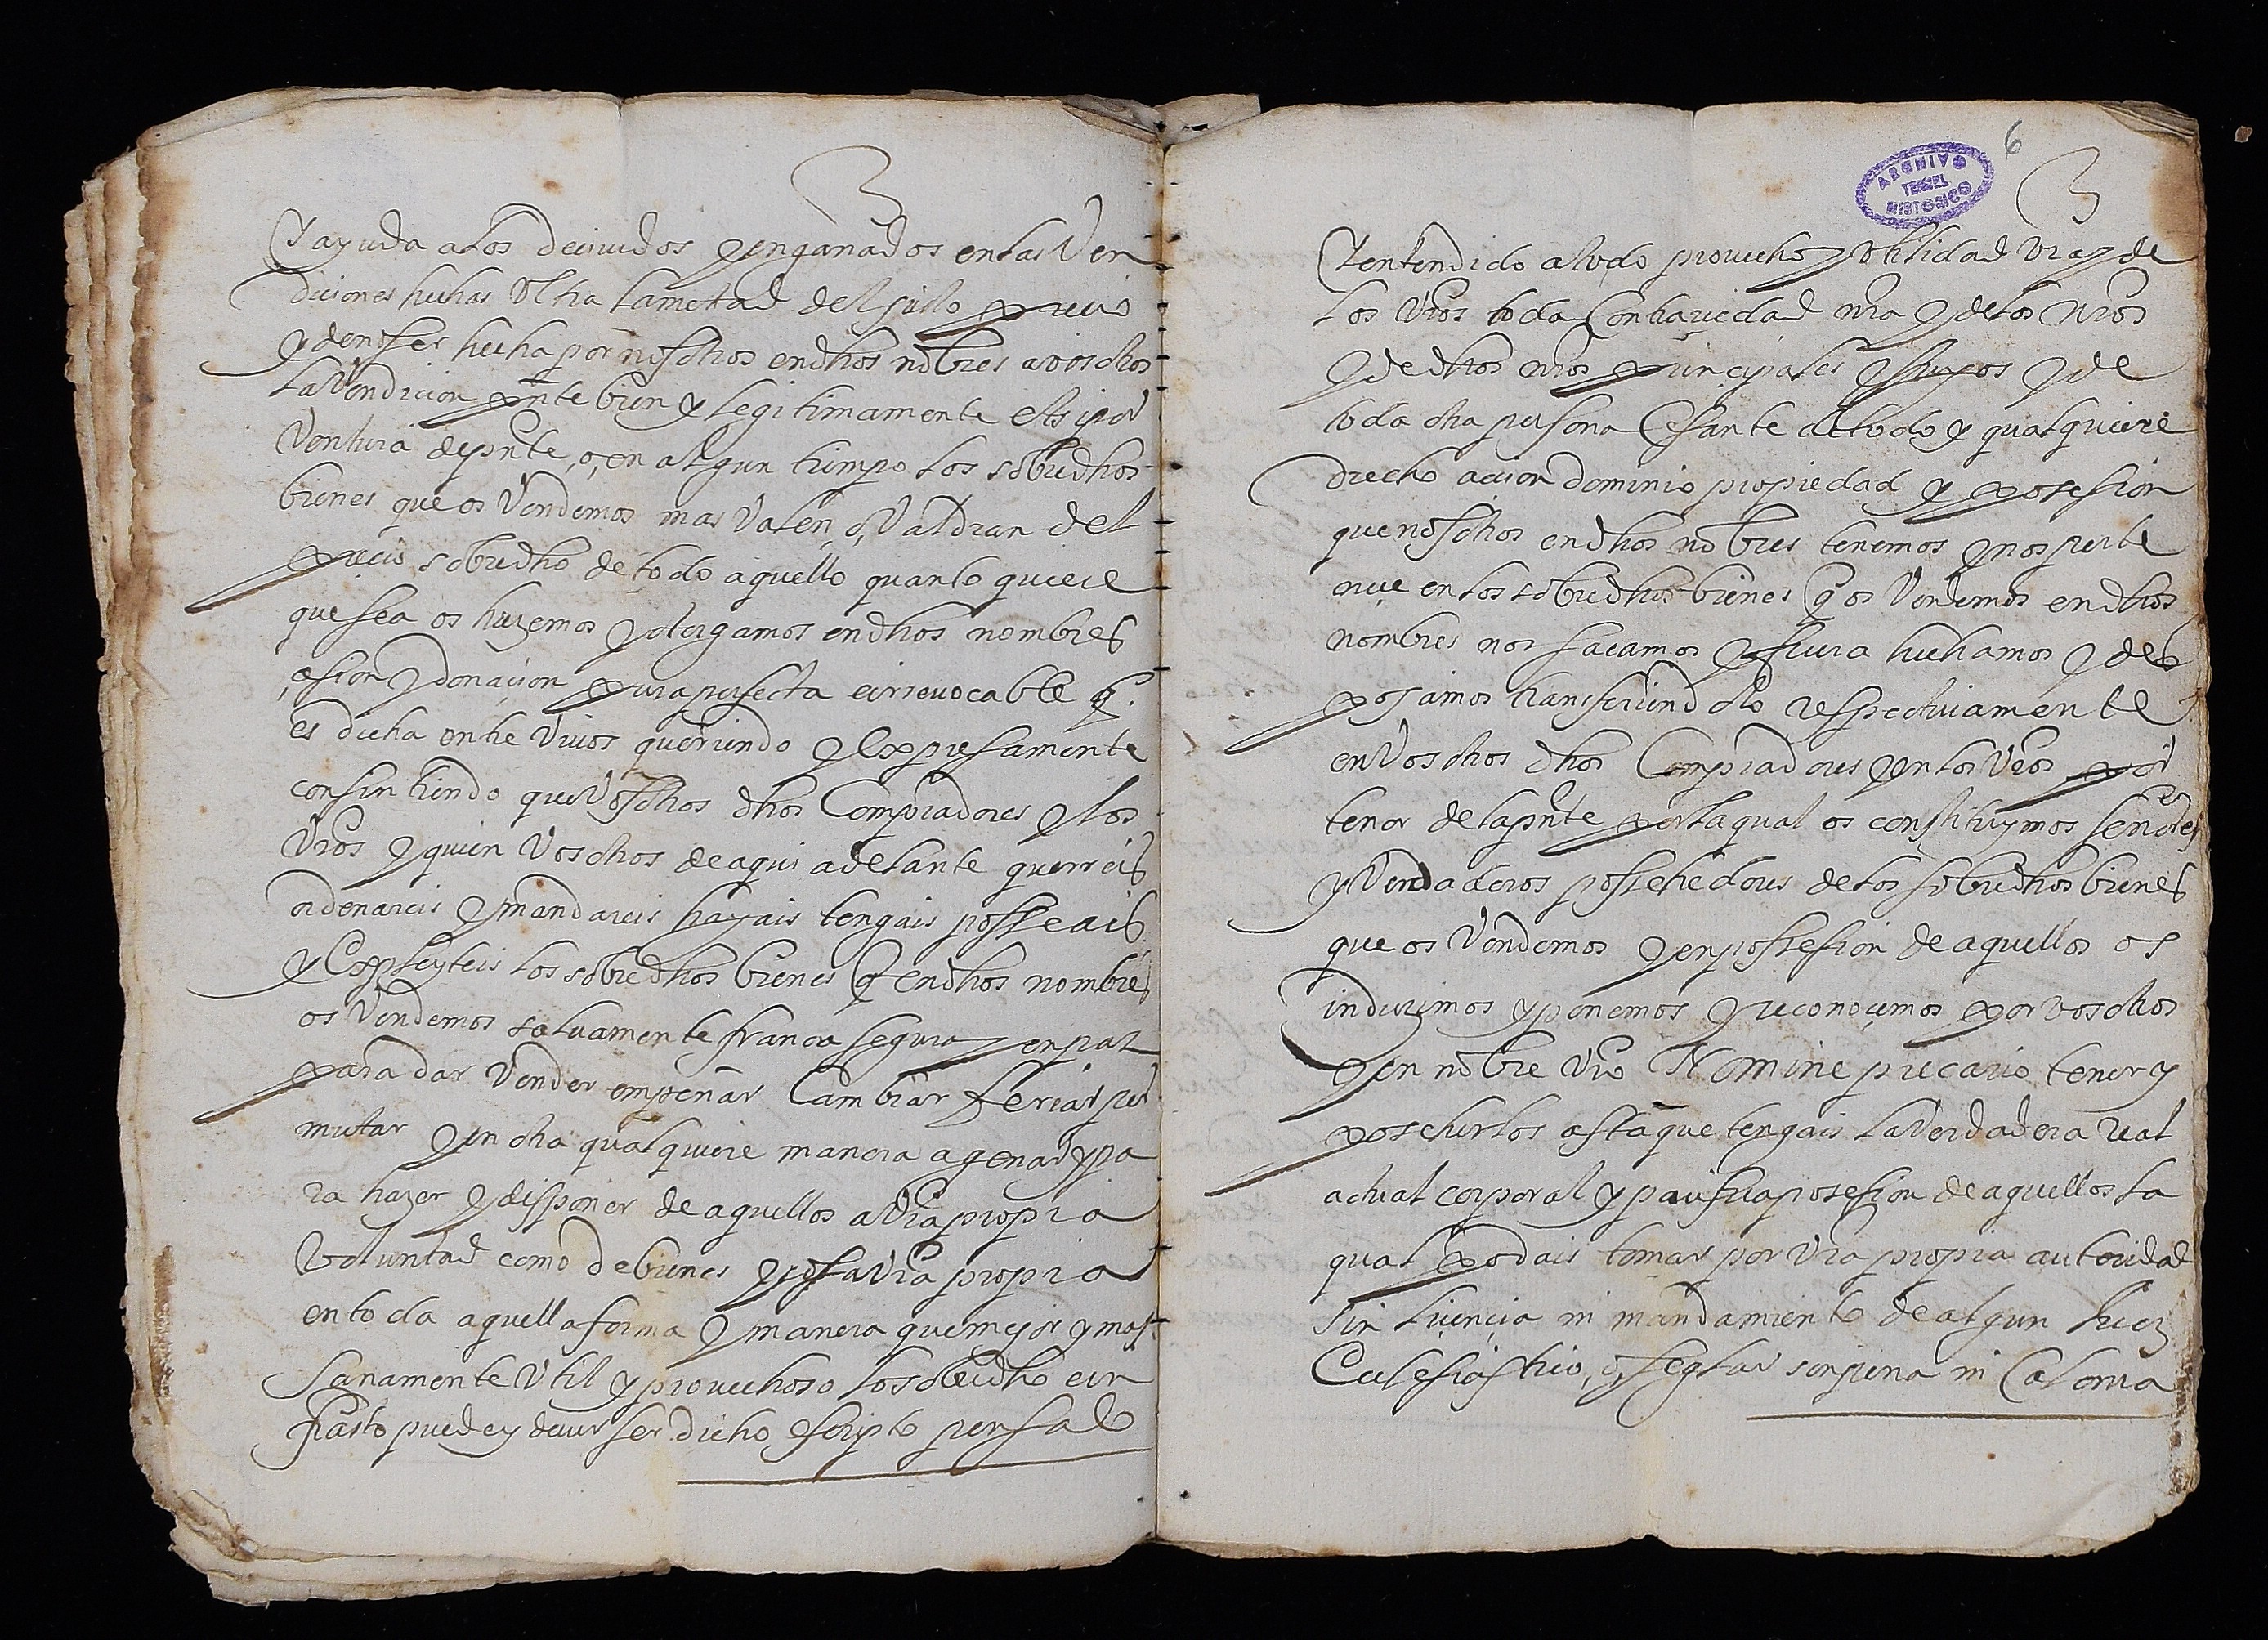 y ayuda a los decividos y enganados en las Ven
diciones hechas Ultra la metad del justo precio
y de no ser hecha por nosotros en dhos nōbres a vosotros
la Vendicion pnte bien y legitimamente et si por
Ventura de pnte, o, en algun tiempo los sobredhos
bienes que os Vendemos mas Valen, o, Valdran del
precio sobredho de todo aquello quanto quiere
que sea os hazemos y otorgamos en dhos nombres
çesion y donaçion pura perfecta e irrevocable q̃
es dicha entre Vivos queriendo y Expresamente
consintiendo que Vosotros dhos Compradores y los
Vros y quien Vosotros de aqui adelante querreis
ordenareis y mandareis hayais tengais posseais
y Expleyteis los sobredhos bienes q̃ en dhos nombres
os Vendemos salvamente franca segura y en paz
para dar Vender empeñar Cambiar feriar per
mutar y en otra qualquiere manera agenar y pa
ra hazer y disponer de aquellos a Vra propria
Voluntad como de bienes y cosa Vra propria
en toda aquella forma y manera que mejor y mas
sanamente Util y provechoso lo sobredho e in
frasto puede y deve ser dicho escripto pensado
6
ARCHIVO
TERUEL
HISTORICO
Y entendido a todo provecho y utilidad vra y de
los Vros toda Contrariedad nra y de los nros
y de dhos nros principales y suyos y de
toda otra persona Cesante de todo y qualquiere
drecho accion dominio propiedad y posesion
que nosotros en dhos nōbres tenemos y nos perte
neçe en los sobredhos bienes q̃ os Vendemos en dhos
nombres nos sacamos y fuera hechamos y des
posamos transferiendolo respectivamente
en Vosotros dhos Compradores y en los Vros por
tenor de la pnte por la qual os constituymos señores
y Verdaderos possehedores de los sobredhos bienes
que os Vendemos y en possesion de aquellos os
induzimos y ponemos y reconoçemos por vosotros
y en nōbre Vro Nomine precario tener y
poseherlos asta que tengais la Verdadera real
actual corporal y paçifica posesion de aquellos la
qual podais tomar por Vra propria autoridad
sin liçençia ni mandamiento de algun Juez
Eclesiastico, o, seglar sin pena ni Calonia